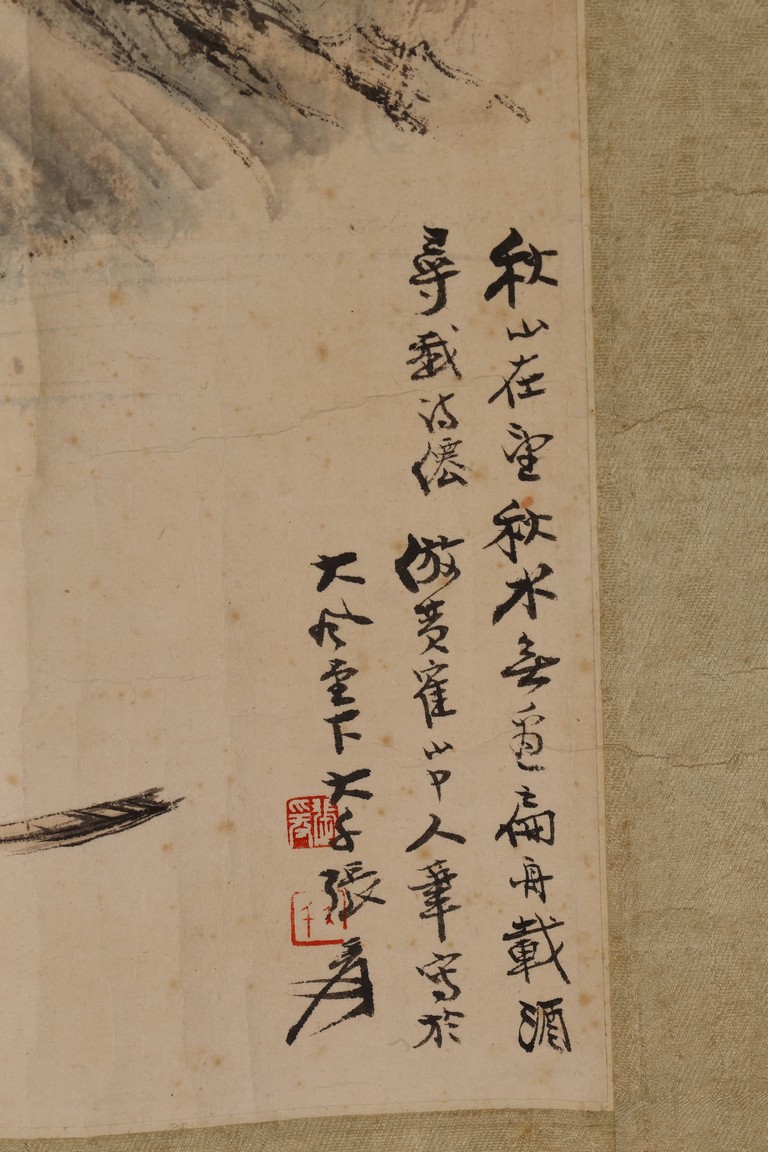 秋山在望秋水無邊扁舟載酒
尋我詩僊 倣黃隺山中人筆寫於
大風堂下大千張爰
大千